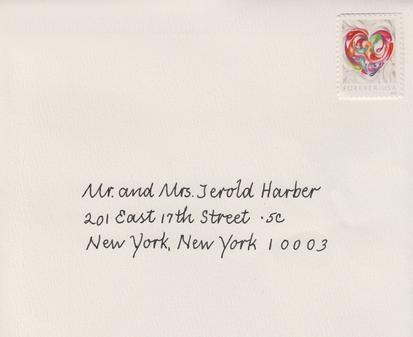 FOREVER/USA
Mr. and Mrs. Jerold Harber
201 East 17th Street · 5C
New York, New York 10003